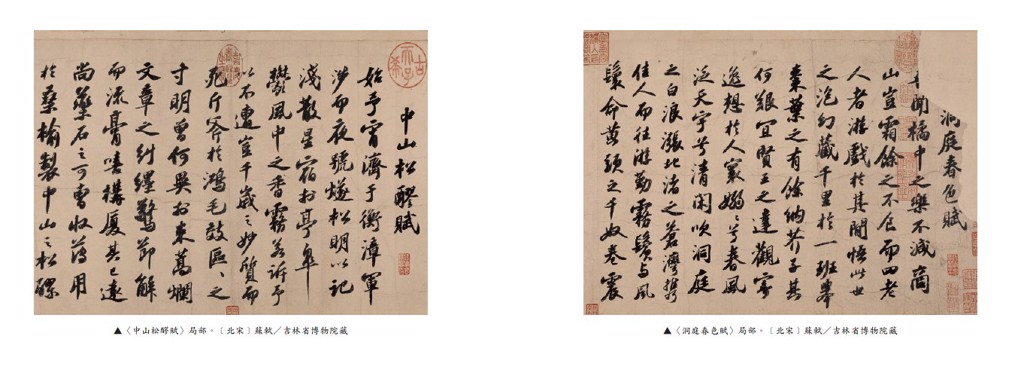 中山松醪賦
始予宵濟于衡漳軍
涉而夜號燧松明以記
淺散星宿於亭皋
鬱風中之香霧若訴予
以不遭豈千歲之妙質而
死斤斧於鴻毛效區〻之
寸明曾何異於束蒿爛
文章之糾纆驚節解
而流膏嘻構廈其已遠
尚藥石之可曹收薄用
於桑榆製中山之松醪
古希天子
▲〈中山松醪賦〉局部。〔北宋〕蘇軾／吉林省博物院藏
洞庭春色賦
吾聞橘中之樂不減商
山豈霜餘之不食而四老
人者游戲於其間悟此世
之泡幻藏千里於一班舉
棗葉之有餘納芥子其
何艱宜賢王之達觀寄
逸想於人寰嫋〻兮春風
泛天宇兮清閑吹洞庭
之白浪漲北渚之蒼灣攜
佳人而往游勤霧鬢與風
鬟命黃頭之千奴卷震
▲〈洞庭春色賦〉局部。〔北宋〕蘇軾／吉林省博物院藏